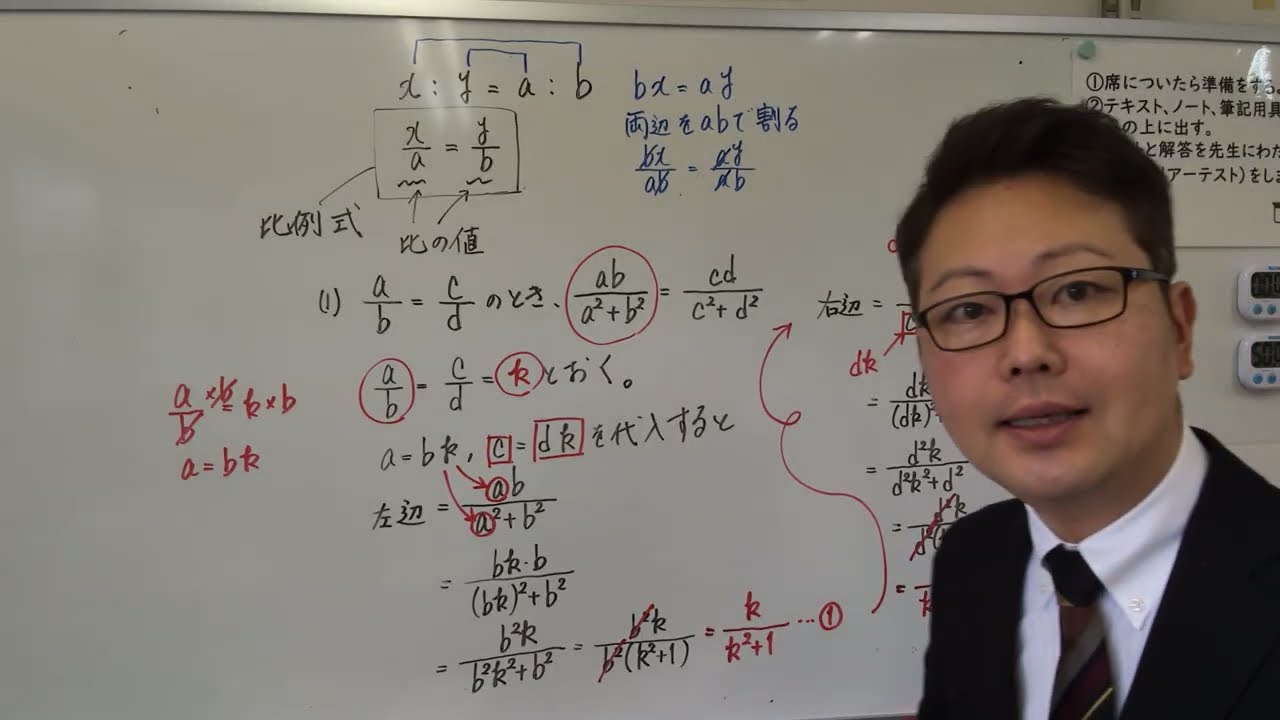 x : y = a : b
x/a = y/b
比例式
比の値
bx = ay
両辺をabで割る
bx/ab = ay/ab
(1) a/b = c/d のとき、 ab/(a²+b²) = cd/(c²+d²)
a/b = c/d = k とおく。
a/b × b = k × b
a = bk
a = bk, c = dk を代入すると
左辺 = ab/(a²+b²)
= bk·b/((bk)²+b²)
= b²k/(b²k²+b²) = b²k/(b²(k²+1)) = k/(k²+1) …①
右辺 =
dk
= dk/(dk)²
= d²k/(d²k²+d²)
= d²k/d²(
= k
①席についたら準備をする
②テキスト、ノート、筆記用具
の上に出す。
と解答を先生にわた
アーテスト)をしま